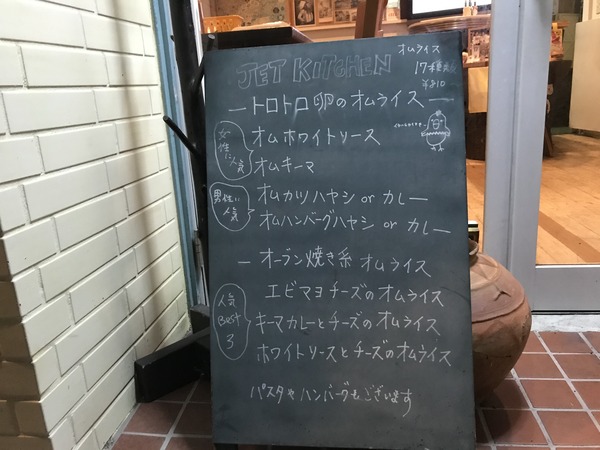 JET KITCHEN
オムライス
17種
¥810
ートロトロ卵のオムライスー
女性に人気
オムホワイトソース
オムキーマ
男性に人気
オムカツハヤシ or カレー
オムハンバーグハヤシ or カレー
ーオーブン焼き系 オムライス
人気 Best 3
エビマヨチーズのオムライス
キーマカレーとチーズのオムライス
ホワイトソースとチーズのオムライス
パスタやハンバーグもございます